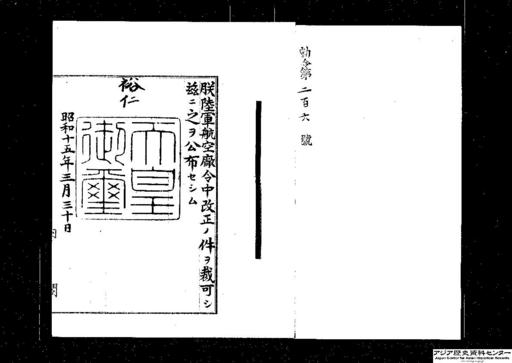 勅令第二百六號
朕陸軍航空廠令中改正ノ件ヲ裁可シ
茲ニ之ヲ公布セシム
裕仁
天皇
御璽
昭和十五年三月三十日
内閣
アジア歴史資料センター
Japan Center for Asian Historical Records